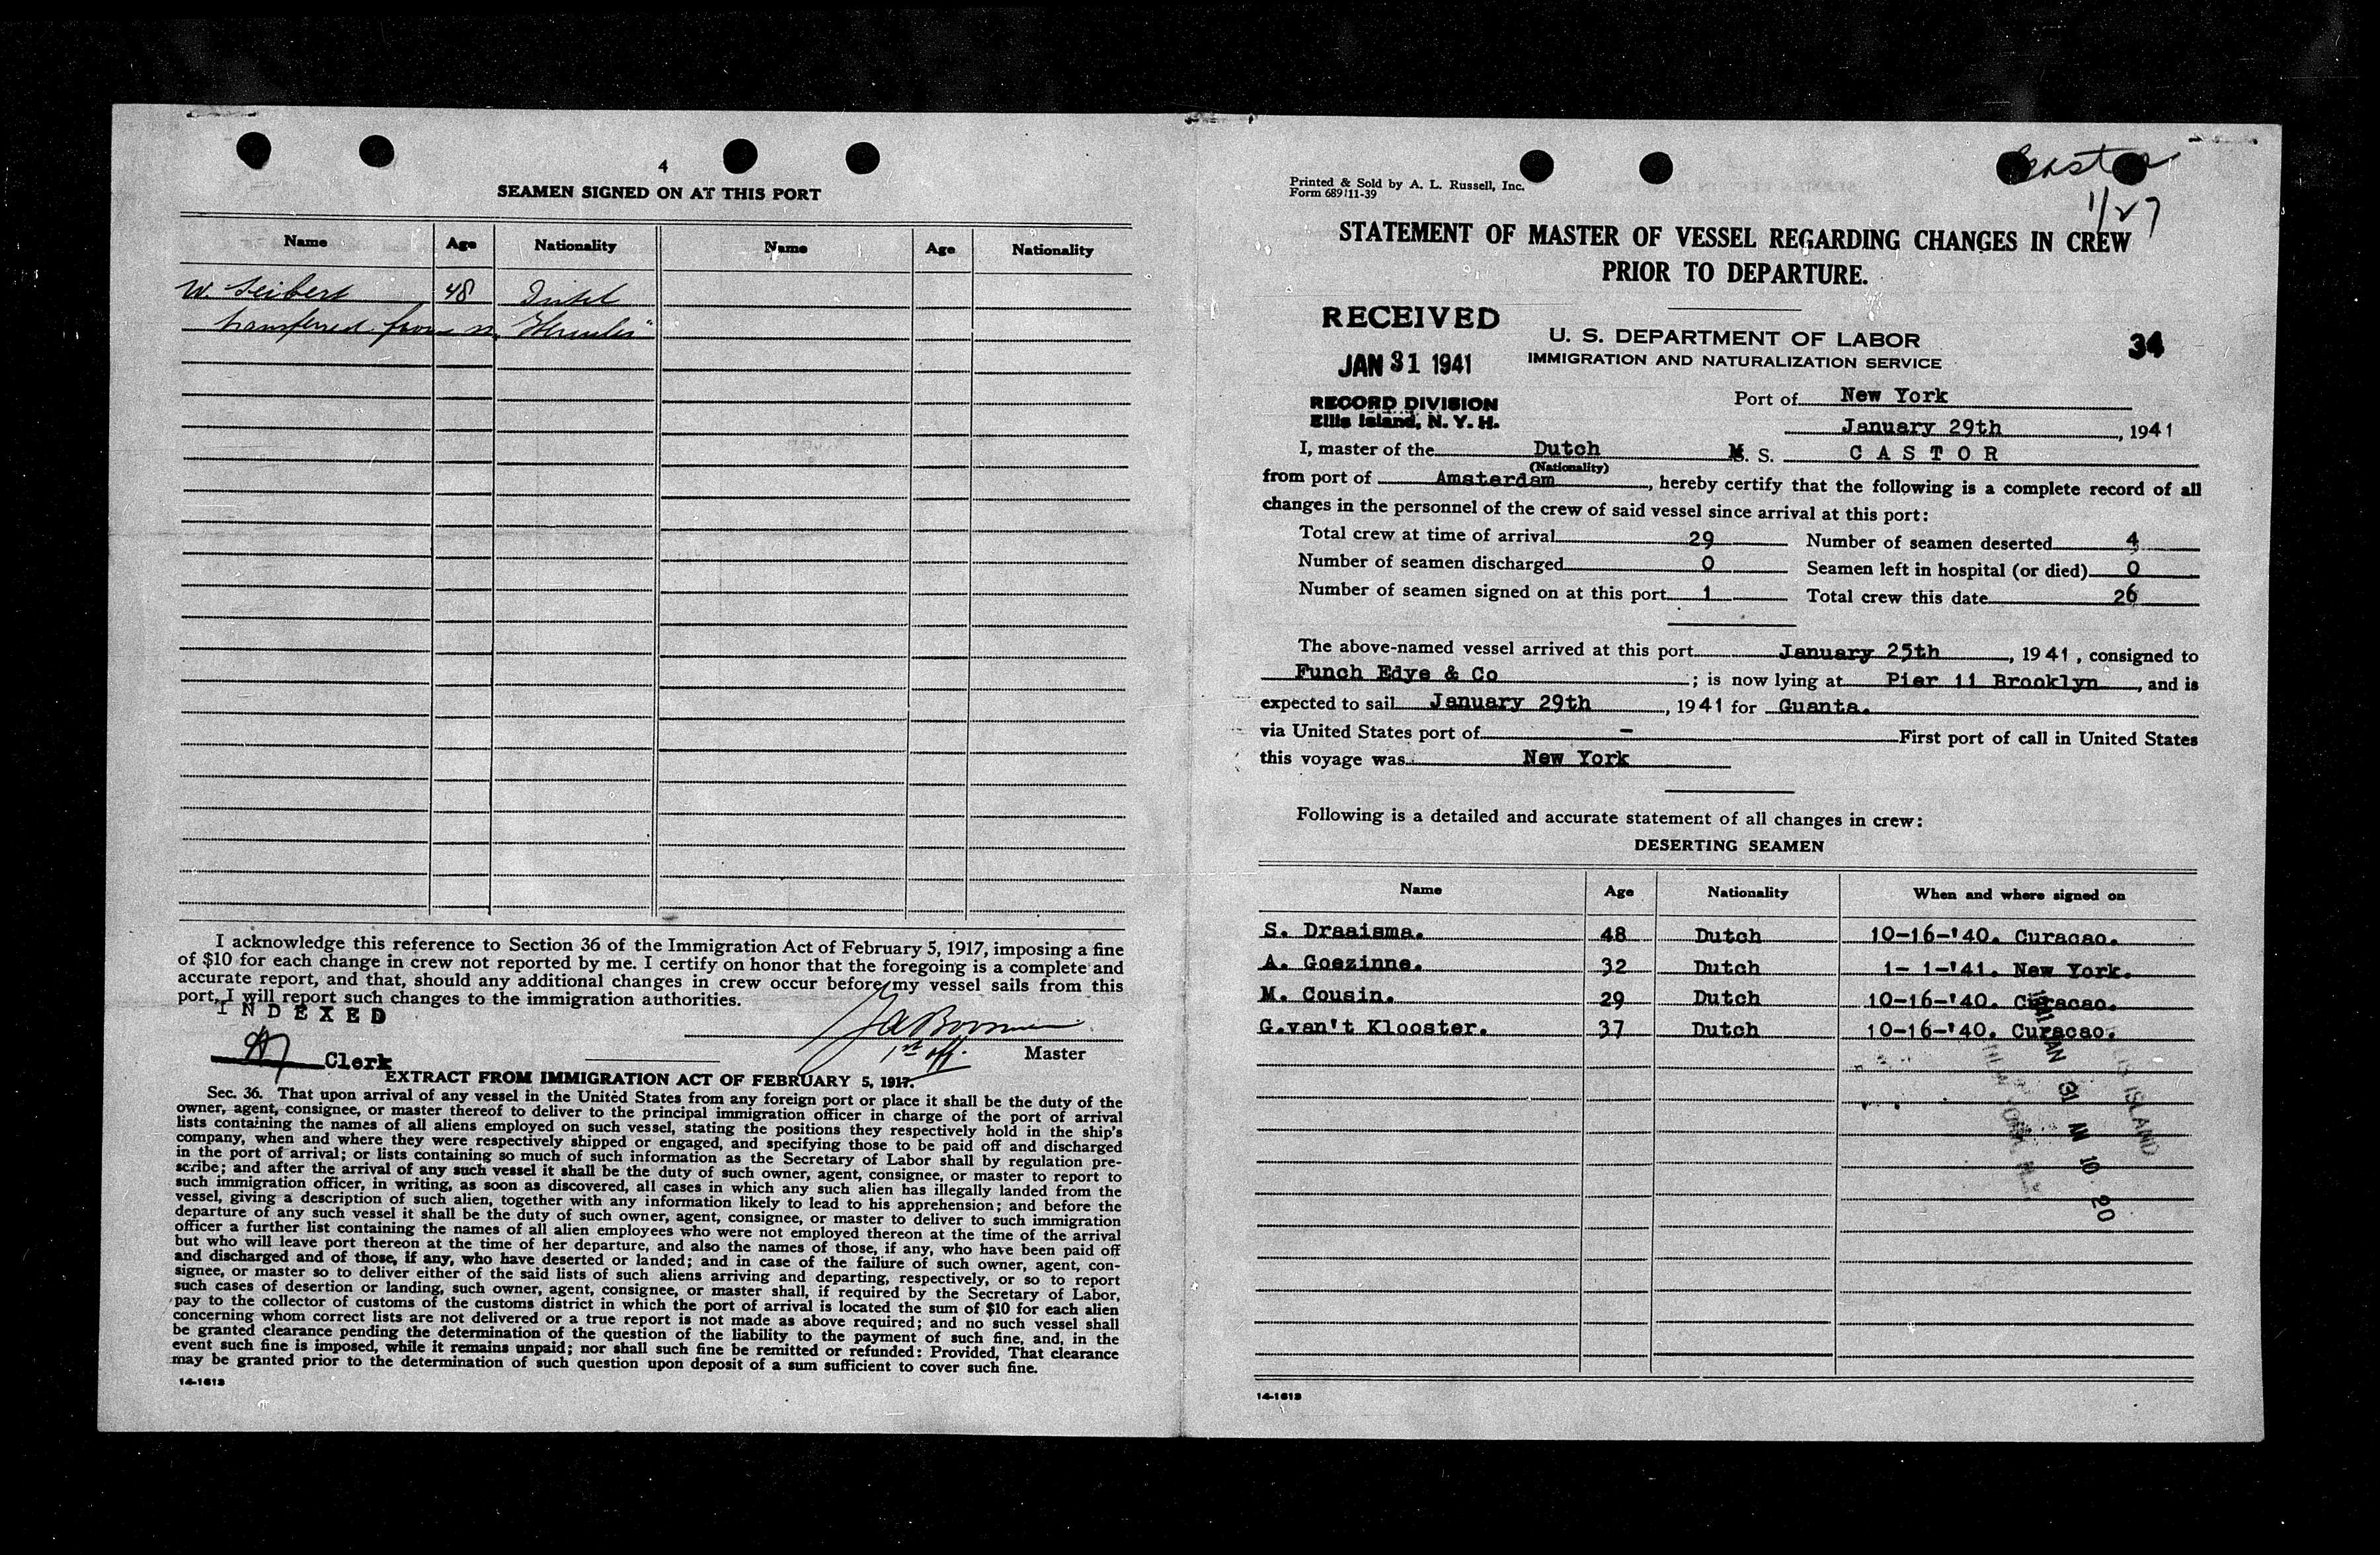 4
SEAMEN SIGNED ON AT THIS PORT
Name Age Nationality Name Age Nationality
W. Seibert 48 Dutch
transferred from ss. "Hercules"
I acknowledge this reference to Section 36 of the Immigration Act of February 5, 1917, imposing a fine
of $10 for each change in crew not reported by me. I certify on honor that the foregoing is a complete and
accurate report, and that, should any additional changes in crew occur before my vessel sails from this
port, I will report such changes to the immigration authorities.
INDEXED
1st off. Master
Clerk
EXTRACT FROM IMMIGRATION ACT OF FEBRUARY 5, 1917.
Sec. 36. That upon arrival of any vessel in the United States from any foreign port or place it shall be the duty of the
owner, agent, consignee, or master thereof to deliver to the principal immigration officer in charge of the port of arrival
lists containing the names of all aliens employed on such vessel, stating the positions they respectively hold in the ship's
company, when and where they were respectively shipped or engaged, and specifying those to be paid off and discharged
in the port of arrival; or lists containing so much of such information as the Secretary of Labor shall by regulation pre-
scribe; and after the arrival of any such vessel it shall be the duty of such owner, agent, consignee, or master to report to
such immigration officer, in writing, as soon as discovered, all cases in which any such alien has illegally landed from the
vessel, giving a description of such alien, together with any information likely to lead to his apprehension; and before the
departure of any such vessel it shall be the duty of such owner, agent, consignee, or master to deliver to such immigration
officer a further list containing the names of all alien employees who were not employed thereon at the time of the arrival
but who will leave port thereon at the time of her departure, and also the names of those, if any, who have been paid off
and discharged and of those, if any, who have deserted or landed; and in case of the failure of such owner, agent, con-
signee, or master so to deliver either of the said lists of such aliens arriving and departing, respectively, or so to report
such cases of desertion or landing, such owner, agent, consignee, or master shall, if required by the Secretary of Labor,
pay to the collector of customs of the customs district in which the port of arrival is located the sum of $10 for each alien
concerning whom correct lists are not delivered or a true report is not made as above required; and no such vessel shall
be granted clearance pending the determination of the question of the liability to the payment of such fine, and, in the
event such fine is imposed, while it remains unpaid; nor shall such fine be remitted or refunded: Provided, That clearance
may be granted prior to the determination of such question upon deposit of a sum sufficient to cover such fine.
14-1613
Castor
1/27
Printed & Sold by A. L. Russell, Inc.
Form 689 11-39
STATEMENT OF MASTER OF VESSEL REGARDING CHANGES IN CREW
PRIOR TO DEPARTURE.
RECEIVED
JAN 31 1941
RECORD DIVISION
Ellis Island, N. Y. H.
U. S. DEPARTMENT OF LABOR
IMMIGRATION AND NATURALIZATION SERVICE
34
Port of New York
January 29th, 1941
I, master of the Dutch M. S. CASTOR
(Nationality)
from port of Amsterdam, hereby certify that the following is a complete record of all
changes in the personnel of the crew of said vessel since arrival at this port:
Total crew at time of arrival 29 Number of seamen deserted 4
Number of seamen discharged 0 Seamen left in hospital (or died) 0
Number of seamen signed on at this port 1 Total crew this date 26
The above-named vessel arrived at this port January 25th, 1941, consigned to
Funch Edye & Co; is now lying at Pier 11 Brooklyn, and is
expected to sail January 29th, 1941 for Guanta.
via United States port of - First port of call in United States
this voyage was New York
Following is a detailed and accurate statement of all changes in crew:
DESERTING SEAMEN
Name Age Nationality When and where signed on
S. Draaisma. 48 Dutch 10-16-'40. Curacao.
A. Goezinne. 32 Dutch 1- 1-'41. New York.
M. Cousin. 29 Dutch 10-16-'40. Curacao.
G.van't Klooster. 37 Dutch 10-16-'40. Curacao.
JAN 31 AM 10 20
14-1613